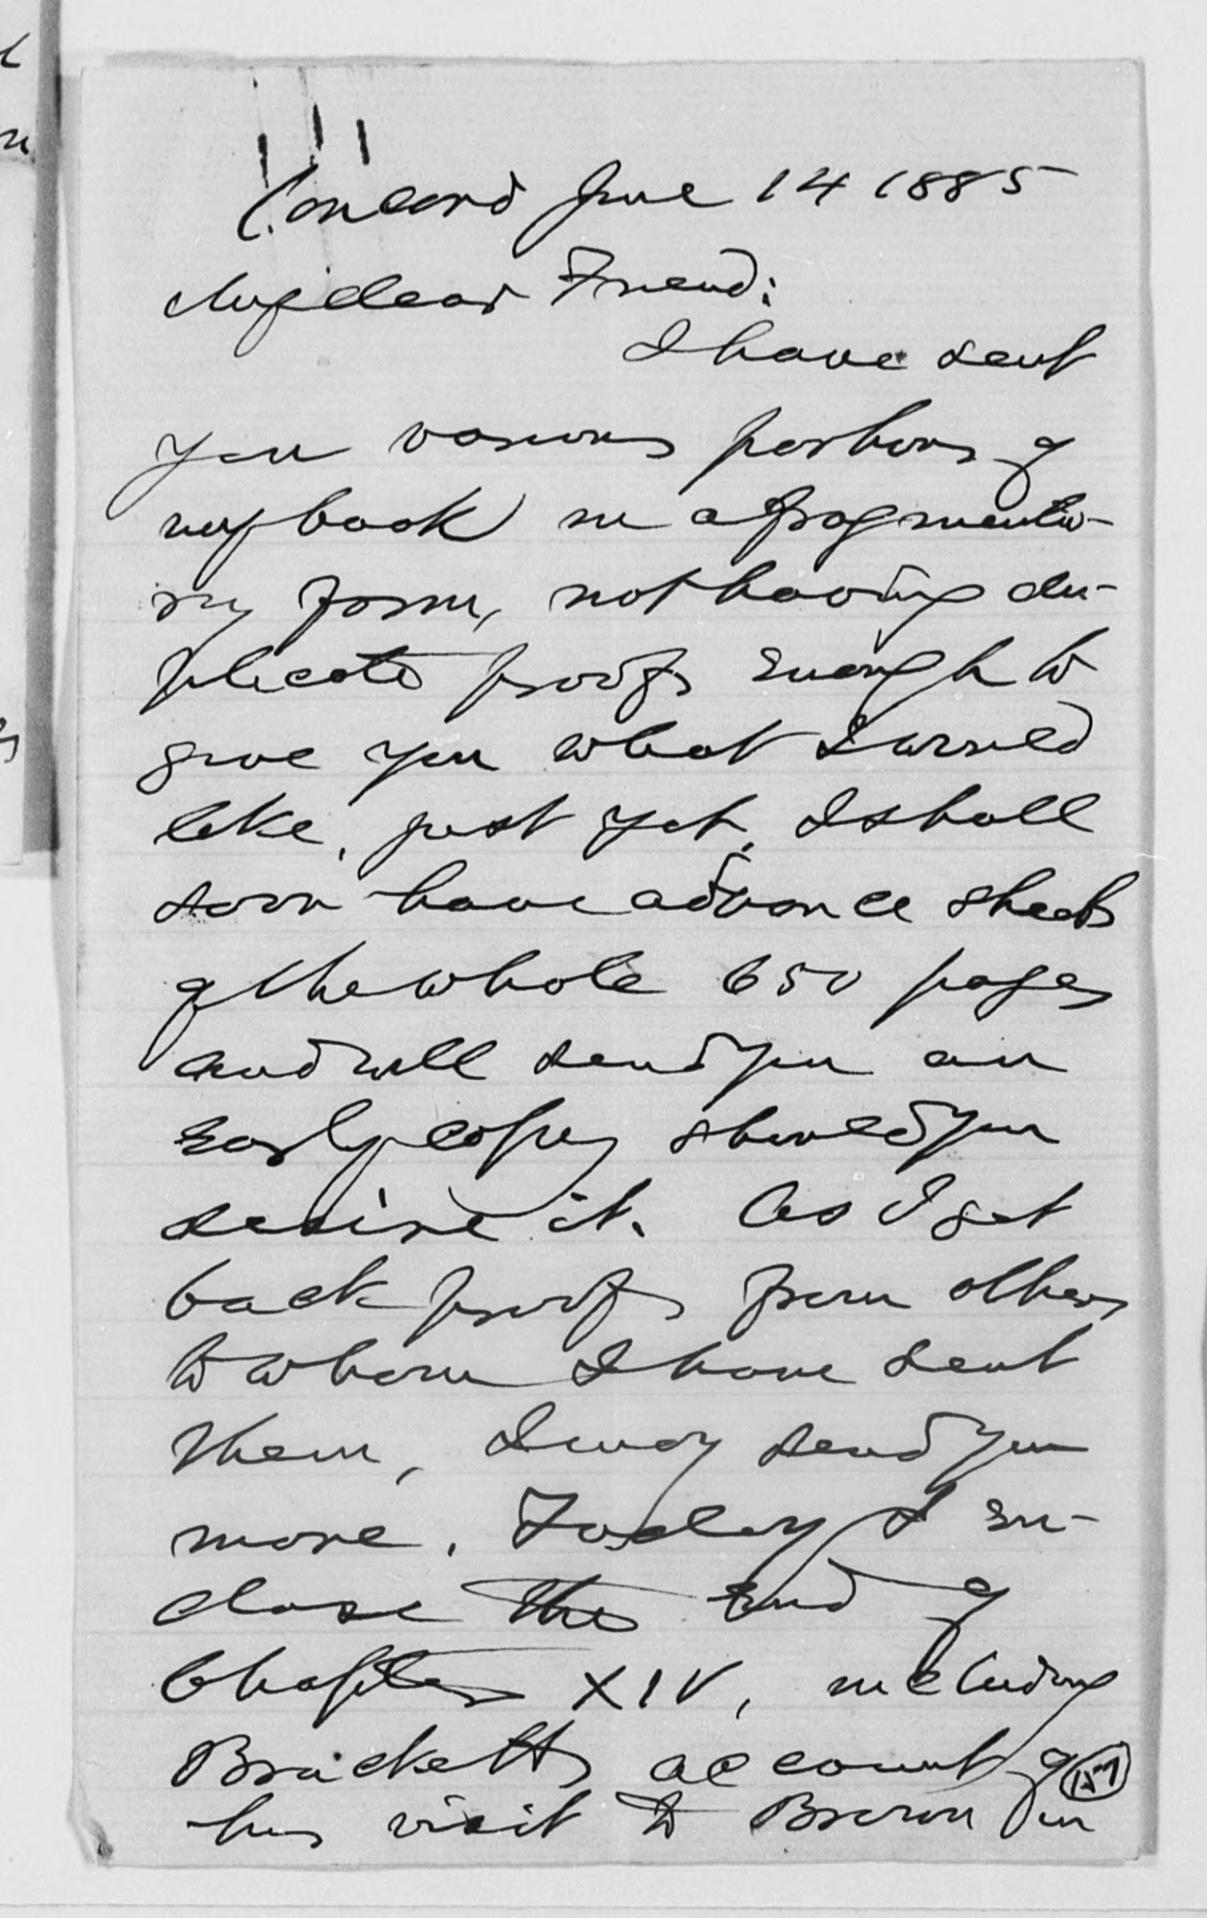 Concord June 14 1885
My dear Friend:
I have sent
you various portions of
my book in a fragmenta-
ry form, not having du-
plicate proofs enough to
give you what I would
like, just yet. I shall
soon have advance sheets
of the whole 650 pages
and will send you an
early copy should you
desire it. As I get
back proofs from others
to whom I have sent
them, I may send you
more. Today I en-
close the end of
Chapter XIV, including
Brackett's account of
his visit to Brown in
157